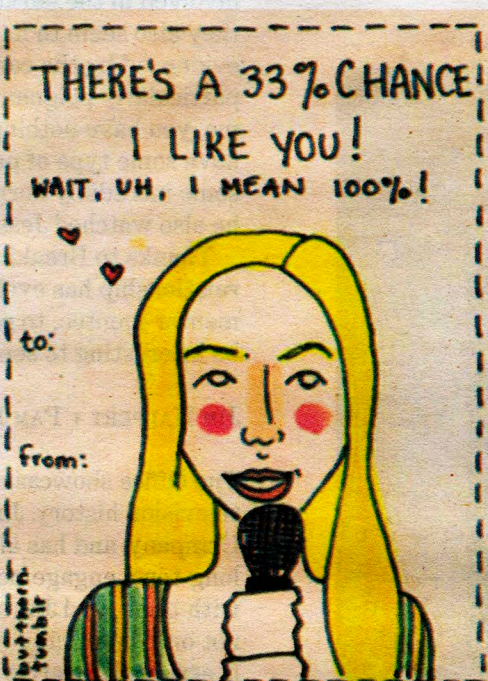 THERE'S A 33% CHANCE
I LIKE YOU!
WAIT, UH, I MEAN 100%!
to:
from:
butthorn.
tumblr